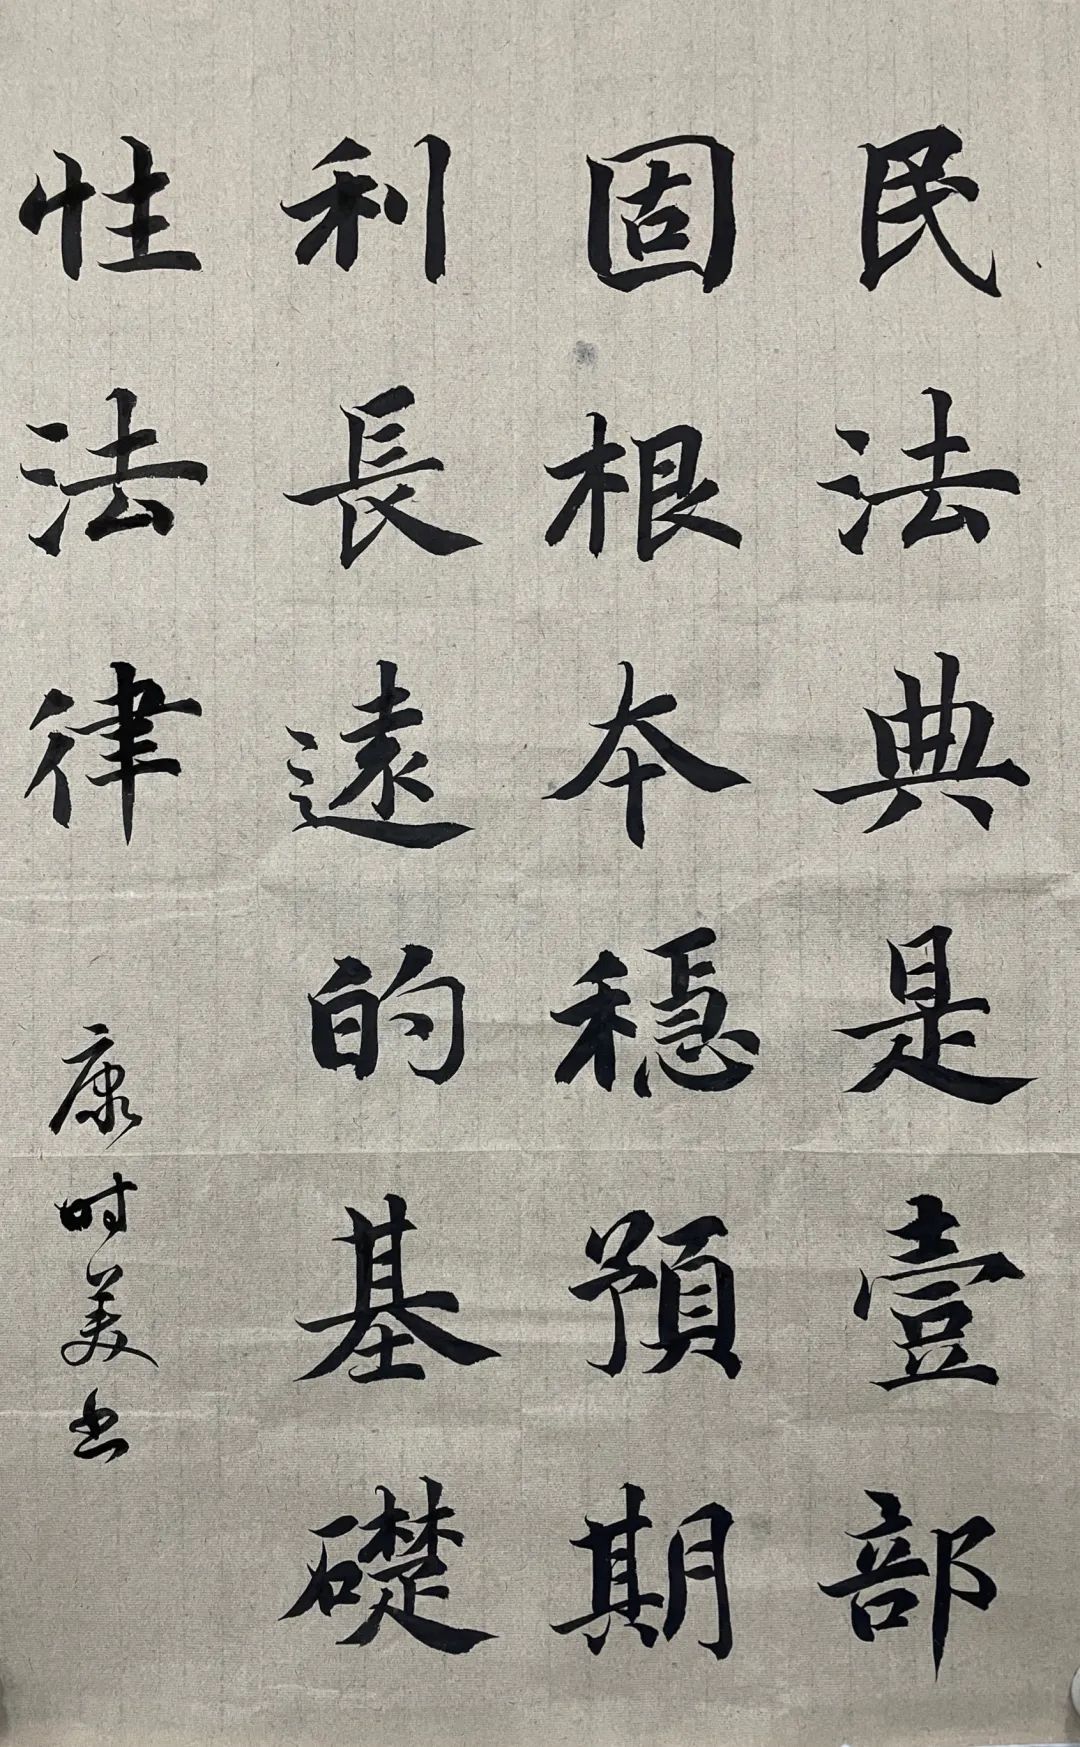 民法典是壹部
固根本穩預期
利長遠的基礎
性法律
康时美书